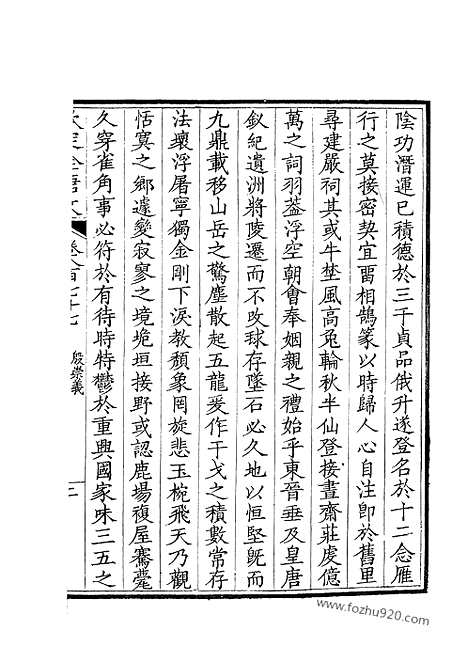 陰功潛運已積德於三子貞品俄升遂登名於十二念雁
行之莫接密契宜畱相鵠篆以時歸人心自注卽於舊里
尋建嚴祠其或牛埜風高兎輪秋半仙登接晝齋莊虔億
萬之詞羽葢浮空朝會奉姻親之禮始乎東晉垂及皇唐
釹紀遺洲將陵遷而不攺球存墜石必久地以恒堅旣而
九鼎載移山岳之驚塵散起五龍爰作干戈之積數常存
法壞浮屠寧獨金剛下淚敎頽象罔旋悲玉椀飛天乃觀
恬寞之鄉遽變寂寥之境垝垣接野或認鹿場複屋騫甍
久穿雀角事必符於有待時特鬱於重興國家味三五之
欽定全唐文
卷八百七十七
殷崇義